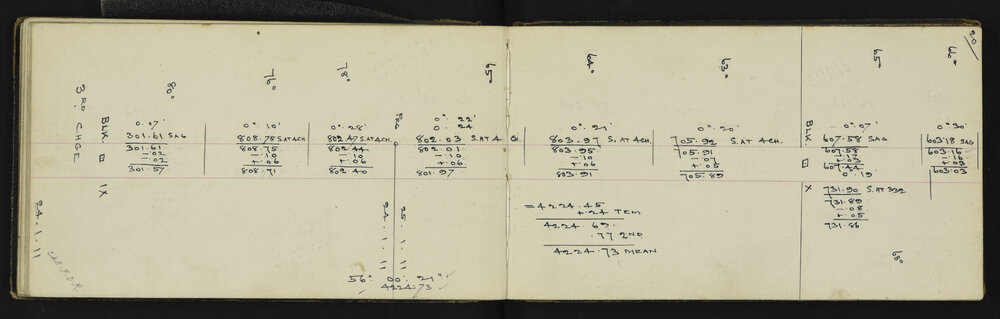 20
3RD CHGE
BLK. IX
80°
0° 07'
301.61 SAG
301.61
-.02
-.02
301.57
76°
0° 10'
808.75 S.AT 4CH
808.75
-.10
+.06
808.71
78°
0° 28'
802.47 S.AT 4CH.
802.44
-.10
+.06
802.40
PEG
65°
0° 22'
0° 24
802.03 S.AT 4 CH.
802.01
-.10
+.06
801.97
64°
0° 21'
803.97 S. AT 4CH.
803.95
-.10
+.06
803.91
63°
0° 20'
705.92 S.AT 4CH.
705.91
-.07
+.05
705.89
BLK X
65°
0° 07'
607.58 SAG
607.58
0° 19
731.90 S.AT 332
731.89
-.08
+.05
731.86
68°
66°
0° 30'
603.18 SAG
603.16
-.10
603.03
= 4224.45
+.24 TEM
4224.69
.77 2ND
4224.73 MEAN
24.1.11
25.1.11
24.1.11
56° 00' 21" ✓
4224.73 ✓